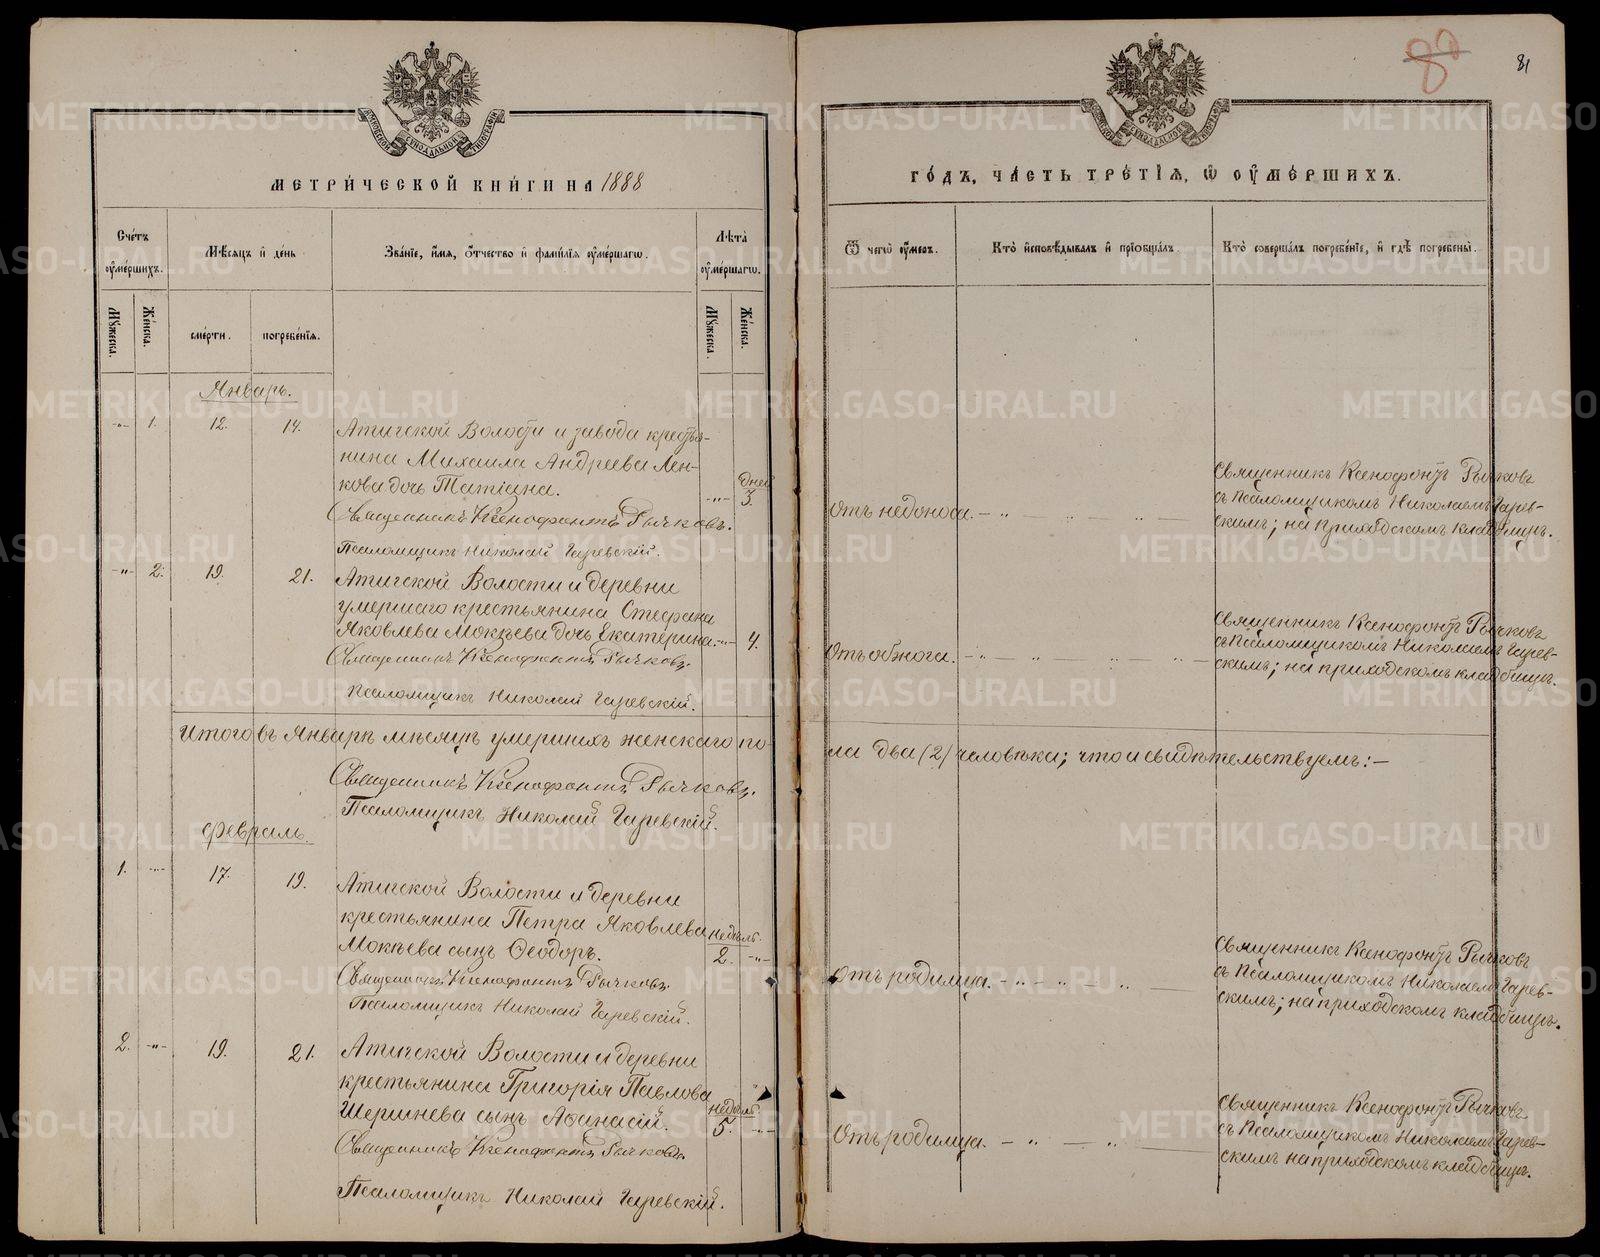 80
81
МОСКОВСКОЙ СѴНОДАЛЬНОЙ ТИПОГРАФІИ
МЕТРИ́ЧЕСКОЙ КНИ́ГИ НА 1888
ГО́ДЪ, ЧА́СТЬ ТРЕ́ТІЯ, Ѿ ОУ҆МЕ́РШИХЪ.
Сче́тъ оу҆ме́ршихъ.
Мѣ́сяцъ и҆ де́нь
Зва́нїе, и҆́мя, ѻ҆́тчество и҆ фами́лїя оу҆ме́ршагѡ.
Лѣ́та оу҆ме́ршагѡ.
Ѿ чегѡ̀ оу҆́меръ.
Кто̀ и҆сповѣ́дывалъ и҆ прїобща́лъ.
Кто̀ соверша́лъ погребе́нїе, и҆ гдѣ̀ погребены̀.
Мꙋ́жеска.
Же́нска.
сме́рти.
погребе́нїя.
Мꙋ́жеска.
Же́нска.
Январь.
-"- 1. 12. 14. Атигской Волости и завода крестья-
нина Михаила Андреева Лен-
кова дочь Татіана. -"- дней 3.
Священникъ Ксенофонтъ Рычковъ.
Псаломщикъ Николай Гаревскій.
Отъ недоноса. - " - " - " -
Священникъ Ксенофонтъ Рычковъ
съ Псаломщикомъ Николаемъ Гарев-
скимъ; на приходскомъ кладбищѣ.
-"- 2. 19. 21. Атигской Волости и деревни
умершаго крестьянина Стефана
Яковлева Мокѣева дочь Екатерина. -"- 4.
Священникъ Ксенофонтъ Рычковъ.
Псаломщикъ Николай Гаревскій.
Отъ обжога. - " - " - " - " -
Священникъ Ксенофонтъ Рычковъ
съ Псаломщикомъ Николаемъ Гарев-
скимъ; на приходскомъ кладбищѣ.
Итого въ Январѣ мѣсяцѣ умершихъ женскаго по-
ла два (2) человѣка; что и свидѣтельствуемъ: -
Священникъ Ксенофонтъ Рычковъ.
Псаломщикъ Николай Гаревскій.
Февраль.
1. -"- 17. 19. Атигской Волости и деревни
крестьянина Петра Яковлева
Мокѣева сынъ Ѳеодоръ. недѣль. 2. -"-
Священникъ Ксенофонтъ Рычковъ.
Псаломщикъ Николай Гаревскій.
Отъ родимца. - " - " - " -
Священникъ Ксенофонтъ Рычковъ
съ Псаломщикомъ Николаемъ Гарев-
скимъ; на приходскомъ кладбищѣ.
2. -"- 19. 21. Атигской Волости и деревни
крестьянина Григорія Павлова
Шершнева сынъ Аѳанасій. недѣль. 5. -"-
Священникъ Ксенофонтъ Рычковъ.
Псаломщикъ Николай Гаревскій.
Отъ родимца. - " - " -
Священникъ Ксенофонтъ Рычковъ
съ Псаломщикомъ Николаемъ Гарев-
скимъ на приходскомъ кладбищѣ.
METRIKI.GASO-URAL.RU